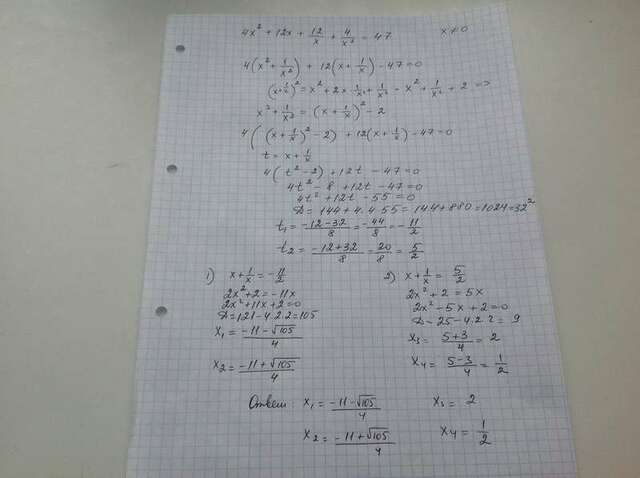 4x² + 12x + 12/x + 4/x² = 47 x ≠ 0
4(x² + 1/x²) + 12(x + 1/x) - 47 = 0
(x + 1/x)² = x² + 2x · 1/x + 1/x² = x² + 1/x² + 2 =>
x² + 1/x² = (x + 1/x)² - 2
4((x + 1/x)² - 2) + 12(x + 1/x) - 47 = 0
t = x + 1/x
4(t² - 2) + 12t - 47 = 0
4t² - 8 + 12t - 47 = 0
4t² + 12t - 55 = 0
D = 144 + 4·4·55 = 144 + 880 = 1024 = 32²
t₁ = (-12-32)/8 = -44/8 = -11/2
t₂ = (-12+32)/8 = 20/8 = 5/2
1) x + 1/x = -11/2
2x² + 2 = -11x
2x² + 11x + 2 = 0
D = 121 - 4·2·2 = 105
x₁ = (-11 - √105)/4
x₂ = (-11 + √105)/4
2) x + 1/x = 5/2
2x² + 2 = 5x
2x² - 5x + 2 = 0
D = 25 - 4·2·2 = 9
x₃ = (5+3)/4 = 2
x₄ = (5-3)/4 = 1/2
Ответ: x₁ = (-11 - √105)/4 x₃ = 2
x₂ = (-11 + √105)/4 x₄ = 1/2